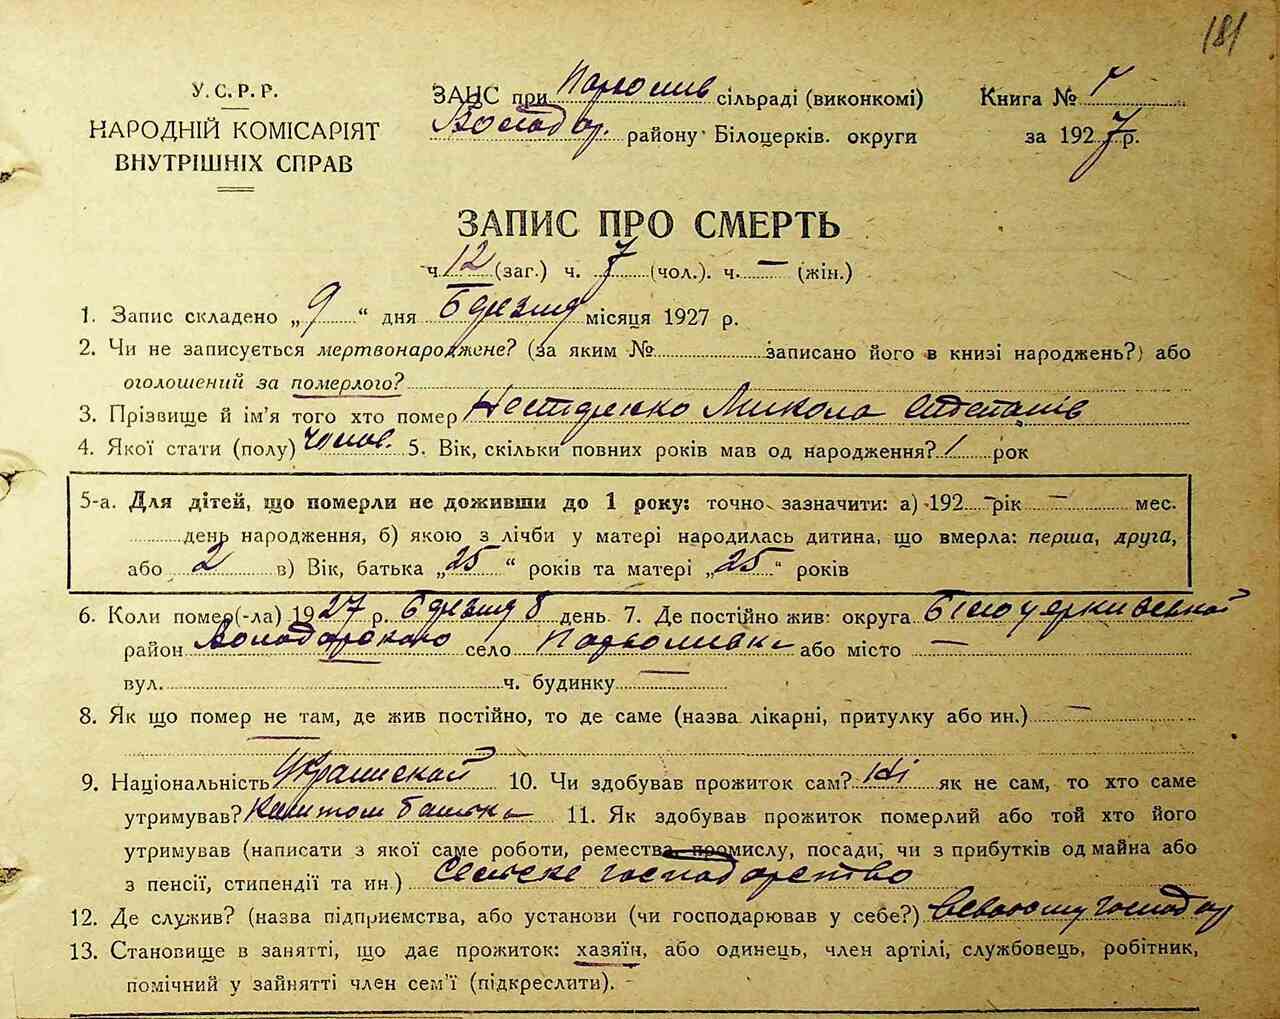 181
У.С.Р.Р.
НАРОДНІЙ КОМІСАРІЯТ
ВНУТРІШНІХ СПРАВ
ЗАЦС при Пархомив сільраді (виконкомі)
Володар. району Білоцерків. округи
Книга №
за 1927 р.
ЗАПИС ПРО СМЕРТЬ
ч. 12 (заг.) ч. 7 (чол.). ч. — (жін.)
1. Запис складено „ 9 “ дня березня місяця 1927 р.
2. Чи не записується мертвонароджене? (за яким № записано його в книзі народжень?) або
оголошений за померлого?
3. Прізвище й ім'я того хто помер Нестеренко Микола Степанів
4. Якої стати (полу) чолов. 5. Вік, скільки повних років мав од народження? 1 рок
5-а. Для дітей, що померли не доживши до 1 року: точно зазначити: а) 192 — рік — мес.
день народження, б) якою з лічби у матері народилась дитина, що вмерла: перша, друга,
або 2 в) Вік, батька „ 25 “ років та матері „ 25 “ років
6. Коли помер(-ла) 1927 р. березня 8 день. 7. Де постійно жив: округа Білоцерківской
район Володарского село Пархомивки або місто —
вул. ч. будинку —
8. Як що помер не там, де жив постійно, то де саме (назва лікарні, притулку або ин.) —
9. Національність Украинской 10. Чи здобував прожиток сам? Ні як не сам, то хто саме
утримував? Коштом батька 11. Як здобував прожиток померлий або той хто його
утримував (написати з якої саме роботи, ремества, промислу, посади, чи з прибутків од майна або
з пенсії, стипендії та ин.) Сельске господарство
12. Де служив? (назва підприємства, або установи (чи господарював у себе?) господар
13. Становище в занятті, що дає прожиток: хазяїн, або одинець, член артілі, службовець, робітник,
помічний у зайнятті член сем'ї (підкреслити).